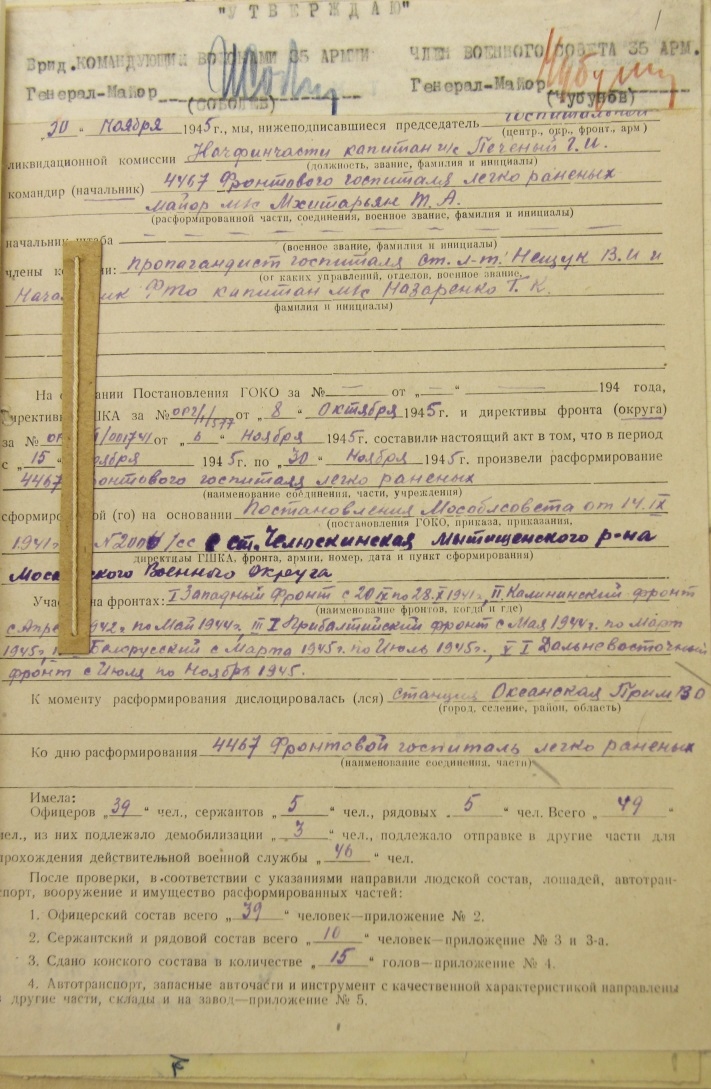 "УТВЕРЖДАЮ"
1
Врид. КОМАНДУЮЩИЙ ВОЙСКАМИ 35 АРМИИ ЧЛЕН ВОЕННОГО СОВЕТА 35 АРМ.
Генерал-Майор Генерал-Майор
(СОБОЛЕВ) (Чубунов)
„30“ Ноября 1945г., мы, нижеподписавшиеся председатель госпитальной
(центр., окр., фронт., арм)
ликвидационной комиссии Начфинчасти капитан и/с Печеный Г.И.
(должность, звание, фамилия и инициалы)
командир (начальник) 4467 Фронтового госпиталя легко раненых
майор м/с Мхитарьян Т.А.
(расформированной части, соединения, военное звание, фамилия и инициалы)
начальник штаба — — — —
(военное звание, фамилия и инициалы)
члены к ии: пропагандист госпиталя ст. л-т. Нещук В.И и
(от каких управлений, отделов, военное звание,
Нача ик Фто капитан м/с Назаренко Г.К.
фамилия и инициалы)
На о ании Постановления ГОКО за № — от „ — “ — 194 года,
Директивы ГШКА за № от „8“ Октября 1945г. и директивы фронта (округа)
за № /001741 от „6“ Ноября 1945г. составили настоящий акт в том, что в период
с „15 оября 1945г. по „30“ Ноября 1945г. произвели расформирование
4467 ронтового госпиталя легко раненых
(наименование соединения, части, учреждения)
сформиро ой (го) на основании Постановления Мособлсовета от 14.IX
(постановления ГОКО, приказа, приказания,
1941г. №2004/сс ст. Челюскинская Мытищенского р-на
директивы ГШКА, фронта, армии, номер, дата и пункт сформирования)
Моск ского Военного Округа
Учас на фронтах: I Западный Фронт с 20.IX по 28.XI 1941г., II. Калининский фронт
(наименование фронтов, когда и где)
с Апре 1942г. по Май 1944г. III I Прибалтийский фронт с Мая 1944г. по Март
1945г. Белорусский с Марта 1945г. по Июль 1945г., V I Дальневосточный
фронт с Июля по Ноябрь 1945.
К моменту расформирования дислоцировалась (лся) станция Океанская Прим ВО
(город, селение, район, область)
Ко дню расформирования 4467 Фронтовой госпиталь легко раненых
(наименование соединения, части)
Имела:
Офицеров „39“ чел., сержантов „5“ чел., рядовых „5“ чел. Всего „49“
чел., из них подлежало демобилизации „3“ чел., подлежало отправке в другие части для
прохождения действительной военной службы „46“ чел.
После проверки, в соответствии с указаниями направили людской состав, лошадей, автотран-
спорт, вооружение и имущество расформированных частей:
1. Офицерский состав всего „39“ человек—приложение № 2.
2. Сержантский и рядовой состав всего „10“ человек—приложение № 3 и 3-а.
3. Сдано конского состава в количестве „15“ голов—приложение № 4.
4. Автотранспорт, запасные авточасти и инструмент с качественной характеристикой направлены
в другие части, склады и на завод—приложение № 5.